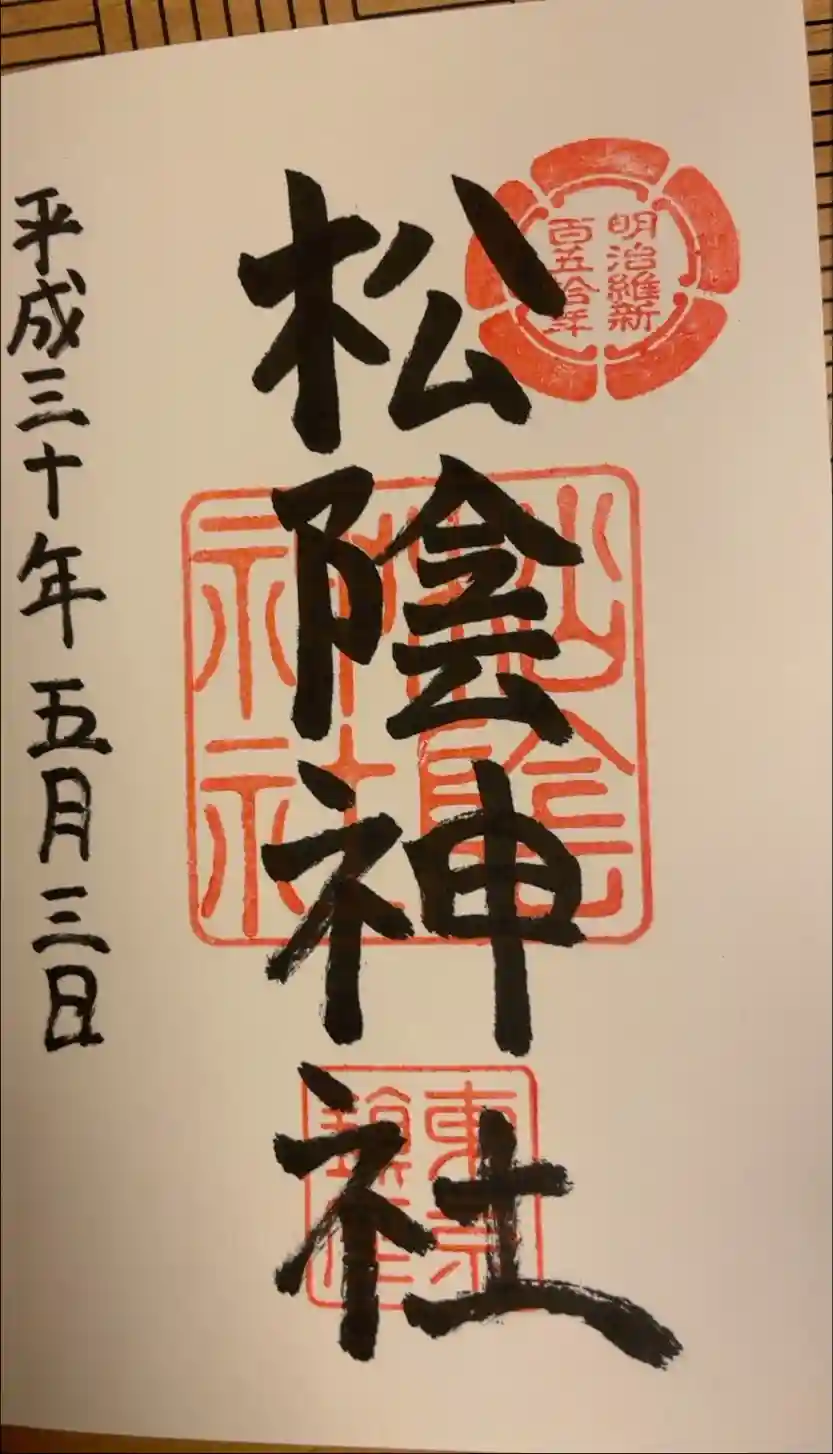 明治維新
百五拾年
松陰神社
松陰神社
東京
鎮座
平成三十年五月三日